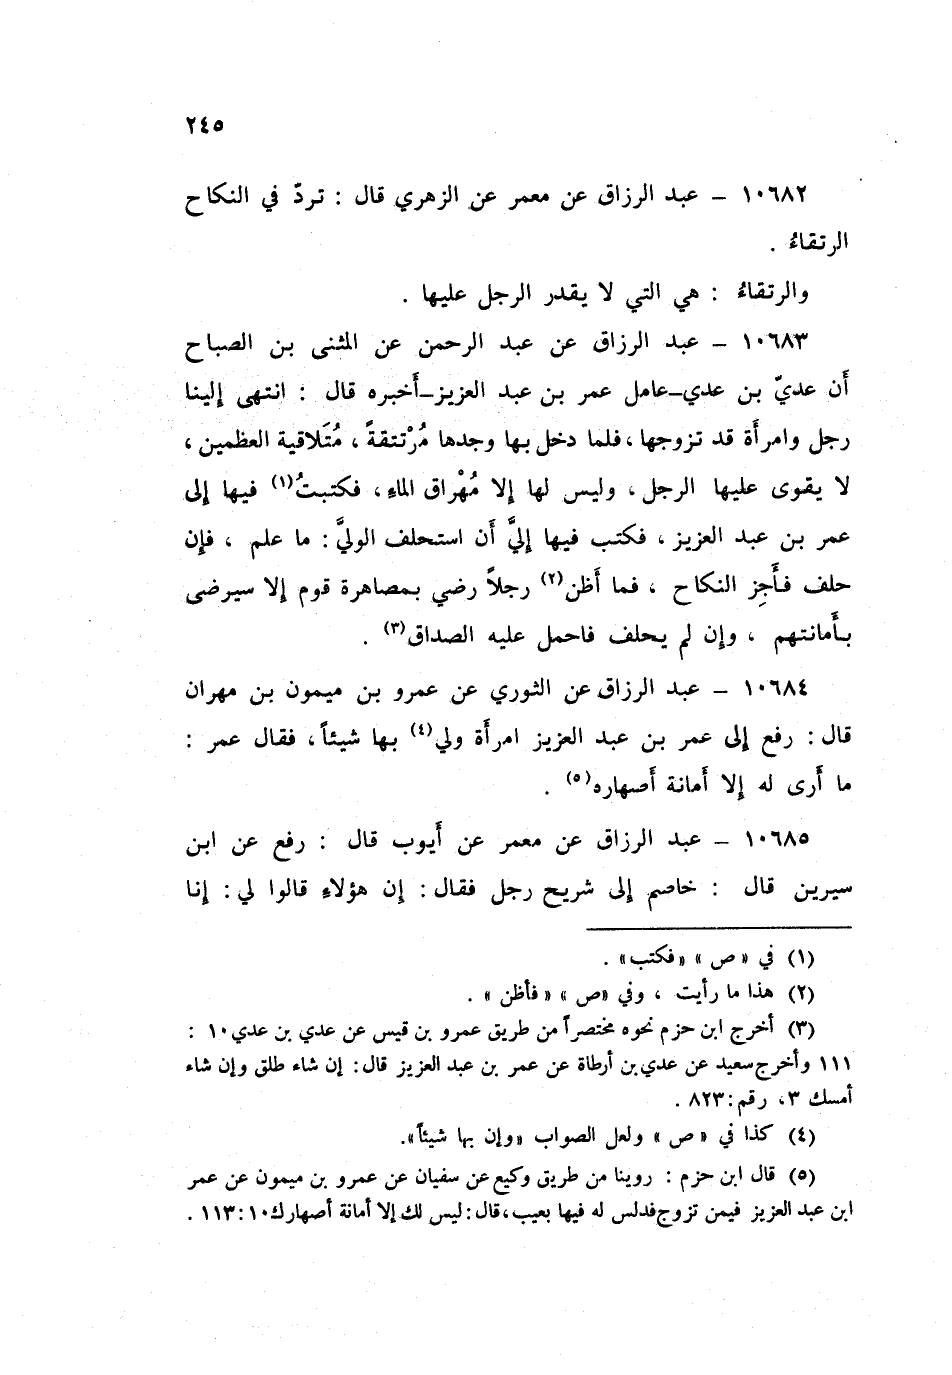 ٢٤٥
١٠٦٨٢ – عبد الرزاق عن معمر عن الزهري قال : تردّ في النكاح
الرتقاءُ .
والرتقاءُ : هي التي لا يقدر الرجل عليها .
١٠٦٨٣ – عبد الرزاق عن عبد الرحمن عن المثنى بن الصباح
أَن عديّ بن عدي–عامل عمر بن عبد العزيز–أَخبره قال : انتهى إلينا
رجل وامرأَة قد تزوجها ، فلما دخل بها وجدها مُرْتتقةً ، مُتَلاقية العظمين ،
لا يقوى عليها الرجل ، وليس لها إلا مُهْراق الماءِ ، فكتبتُ(١) فيها إلى
عمر بن عبد العزيز ، فكتب فيها إليَّ أَن استحلف الوليَّ : ما علم ، فإن
حلف فأَجِز النكاح ، فما أَظن(٢) رجلاً رضي بمصاهرة قوم إلا سيرضى
بأَمانتهم ، وإن لم يحلف فاحمل عليه الصداق(٣) .
١٠٦٨٤ – عبد الرزاق عن الثوري عن عمرو بن ميمون بن مهران
قال : رفع إلى عمر بن عبد العزيز امرأَة ولي(٤) بها شيئاً ، فقال عمر :
ما أَرى له إلا أَمانة أَصهاره(٥) .
١٠٦٨٥ – عبد الرزاق عن معمر عن أَيوب قال : رفع عن ابن
سيرين قال : خاصم إلى شريح رجل فقال : إن هؤلاءِ قالوا لي : إنا
(١) في « ص » «فكتب» .
(٢) هذا ما رأيت ، وفي «ص » « فأظن » .
(٣) أخرج ابن حزم نحوه مختصراً من طريق عمرو بن قيس عن عدي بن عدي ١٠ :
١١١ وأخرج سعيد عن عدي بن أرطاة عن عمر بن عبد العزيز قال : إن شاء طلق وإن شاء
أمسك ٣، رقم : ٨٢٣ .
(٤) كذا في « ص » ولعل الصواب «وإن بها شيئاً».
(٥) قال ابن حزم : روينا من طريق وكيع عن سفيان عن عمرو بن ميمون عن عمر
ابن عبد العزيز فيمن تزوج فدلس له فيها بعيب ، قال : ليس لك إلا أمانة أصهارك ١٠ : ١١٣ .